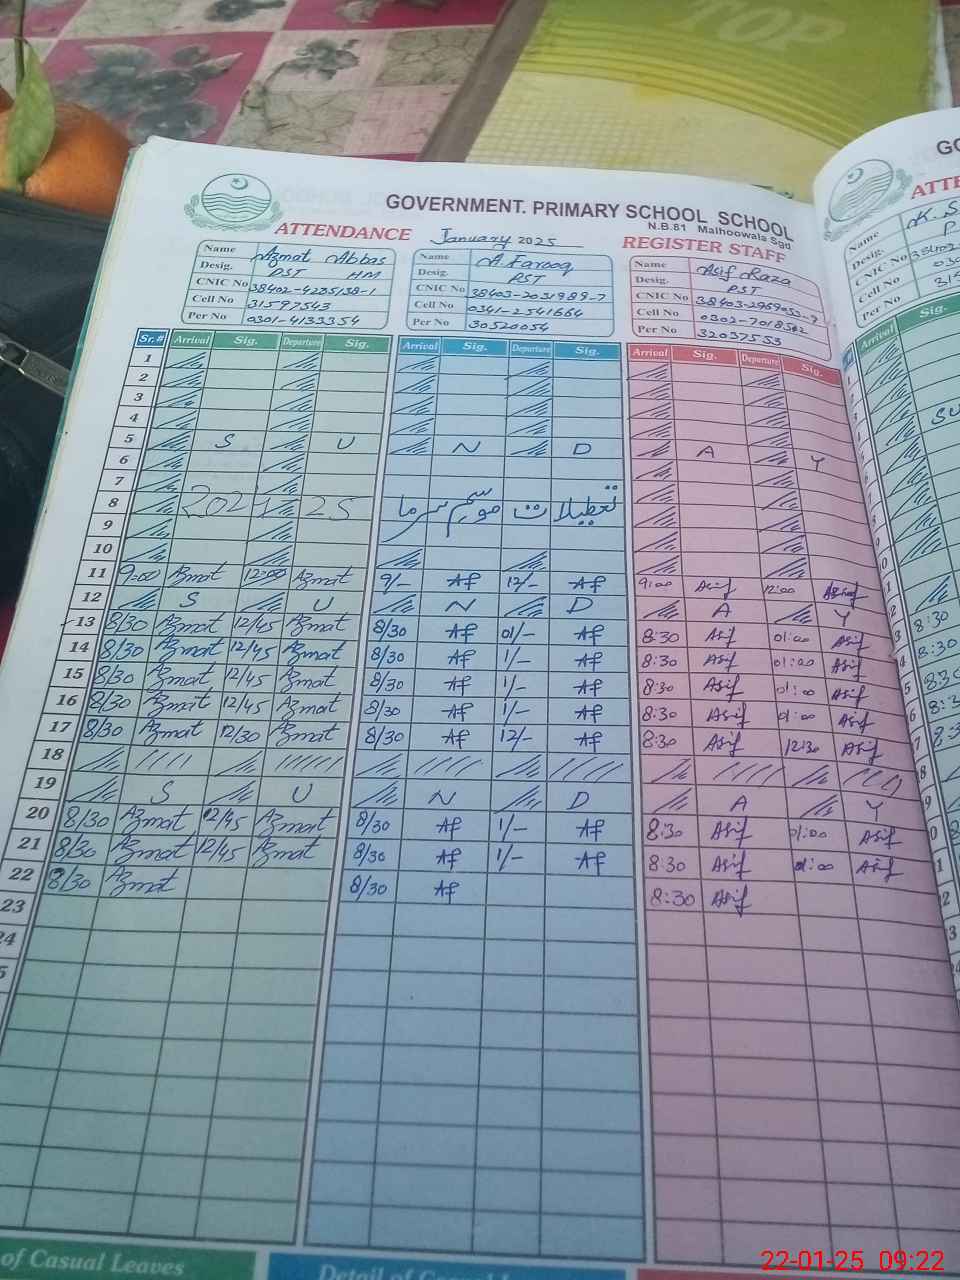 TOP
GOVERNMENT. PRIMARY SCHOOL SCHOOL
N.B.81 Malhoowala Sgd
ATTENDANCE January 2025 REGISTER STAFF
Name Azmat Abbas Name A. Farooq Name Asif Raza
Desig. PST HM Desig. PST Desig. PST
CNIC No 38402-4235138-1 CNIC No 38403-2031989-7 CNIC No
Cell No 31597543 Cell No 0341-2541664 Cell No 0302-7018502
Per No 0301-4133354 Per No 30520054 Per No 32037553
Sr.# Arrival Sig. Departure Sig. Arrival Sig. Departure Sig. Arrival Sig. Departure Sig.
1
2
3
4
5 S U N D A Y
6
7
8 2024-25 تعطیلات موسم سرما
9
10
11 9:00 Azmat 12:00 Azmat 9/- AF 12/- AF 9:00 Asif 12:00 Asif
12 S U N D A Y
13 8/30 Azmat 12/45 Azmat 8/30 AF 01/- AF 8:30 Asif 01:00 Asif
14 8/30 Azmat 12/45 Azmat 8/30 AF 1/- AF 8:30 Asif 01:00 Asif
15 8/30 Azmat 12/45 Azmat 8/30 AF 1/- AF 8:30 Asif 01:00 Asif
16 8/30 Azmat 12/45 Azmat 8/30 AF 1/- AF 8:30 Asif 01:00 Asif
17 8/30 Azmat 12/30 Azmat 8/30 AF 12/- AF 8:30 Asif 12:30 Asif
18
19 S U N D A Y
20 8/30 Azmat 12/45 Azmat 8/30 AF 1/- AF 8:30 Asif 01:00 Asif
21 8/30 Azmat 12/45 Azmat 8/30 AF 1/- AF 8:30 Asif 01:00 Asif
22 8/30 Azmat 8/30 AF 8:30 Asif
23
24
of Casual Leaves
Detail of
22-01-25 09:22